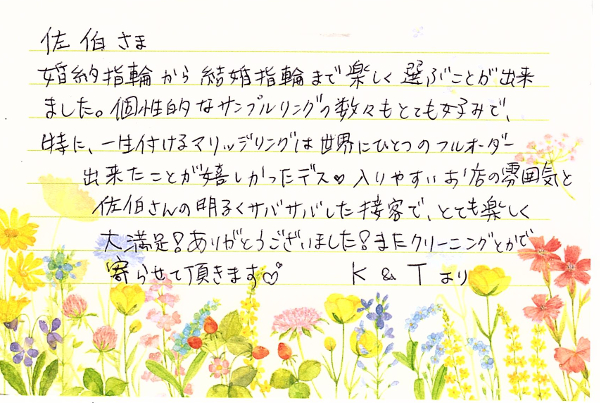 佐伯さま
婚約指輪から結婚指輪まで楽しく選ぶことが出来
ました。個性的なサンプルリングの数々もとても好みで、
特に、一生付けるマリッジリングは世界にひとつのフルオーダー
出来たことが嬉しかったデス♡入りやすいお店の雰囲気と
佐伯さんの明るくサバサバした接客で、とても楽しく
大満足!ありがとうございました!またクリーニングとかで
寄らせて頂きます♡ K & T より